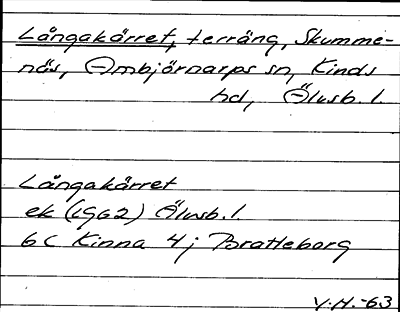 Långakärret, terräng, Skumme-
näs, Ambjörnarps sn, Kinds
hd, Älvsb. l.
Långakärret
ek (1962) Älvsb. l.
6C Kinna 4j Bratteborg
V.H.-63